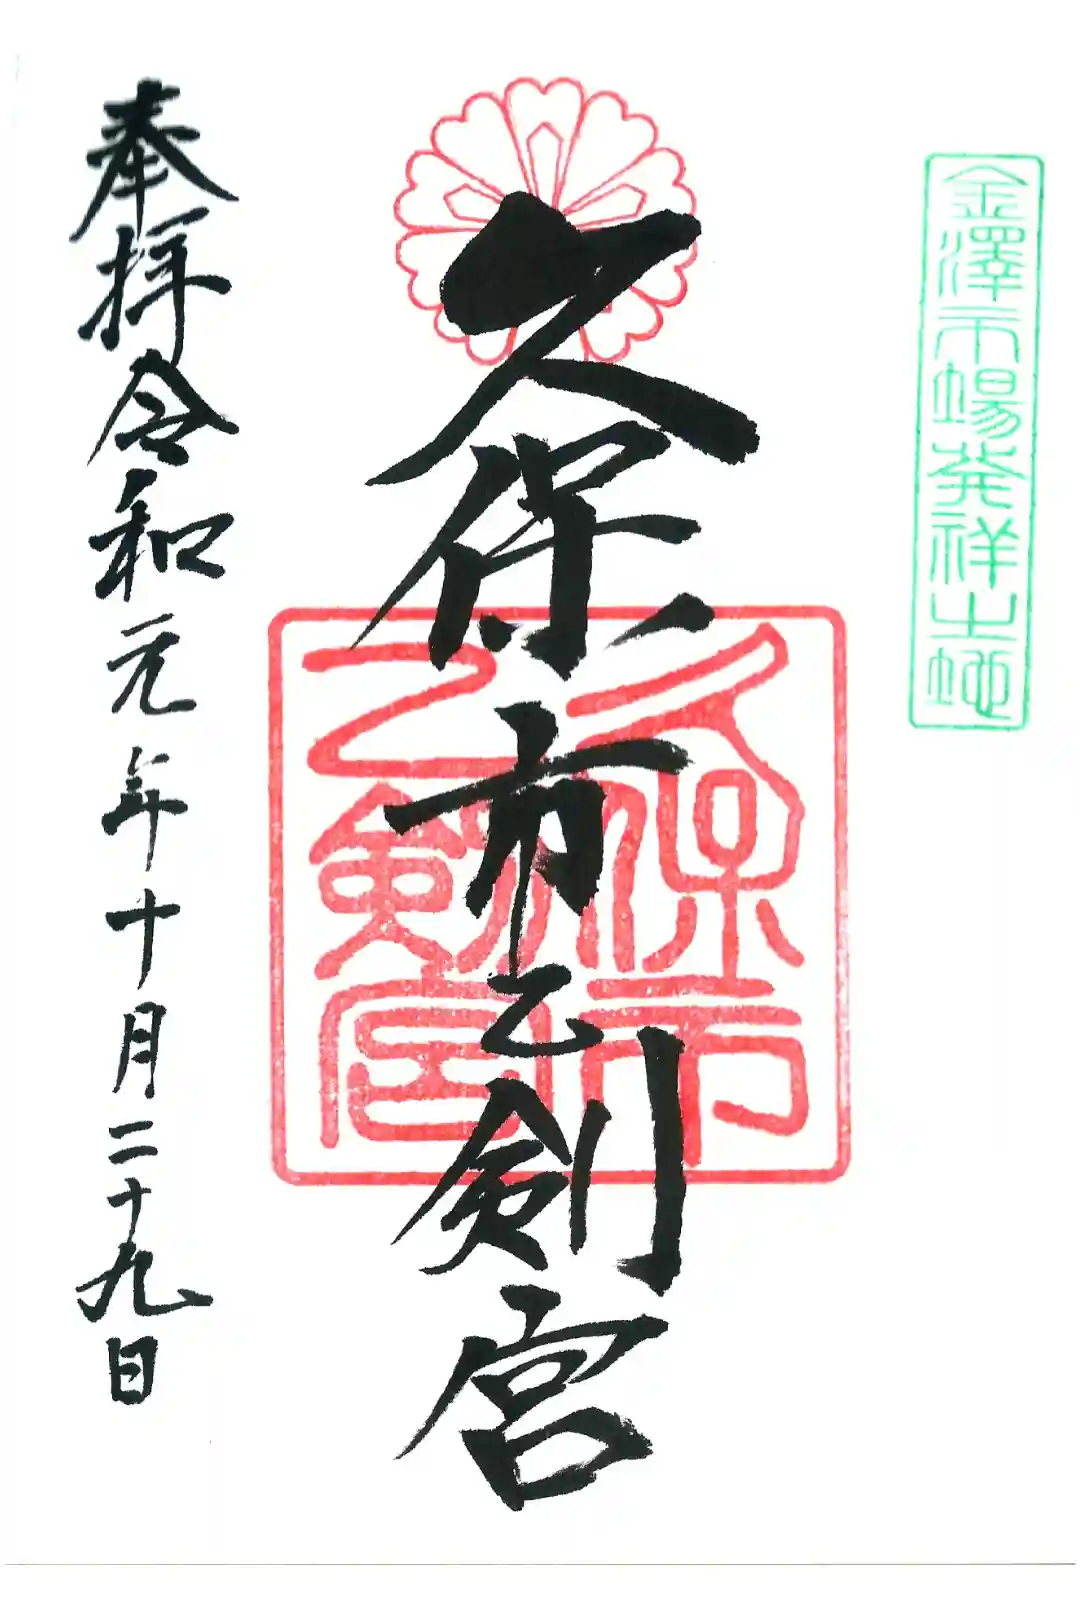 金澤市場発祥之地
久保市乙剣宮
久保市
乙剣宮
奉拝令和元年十月二十九日